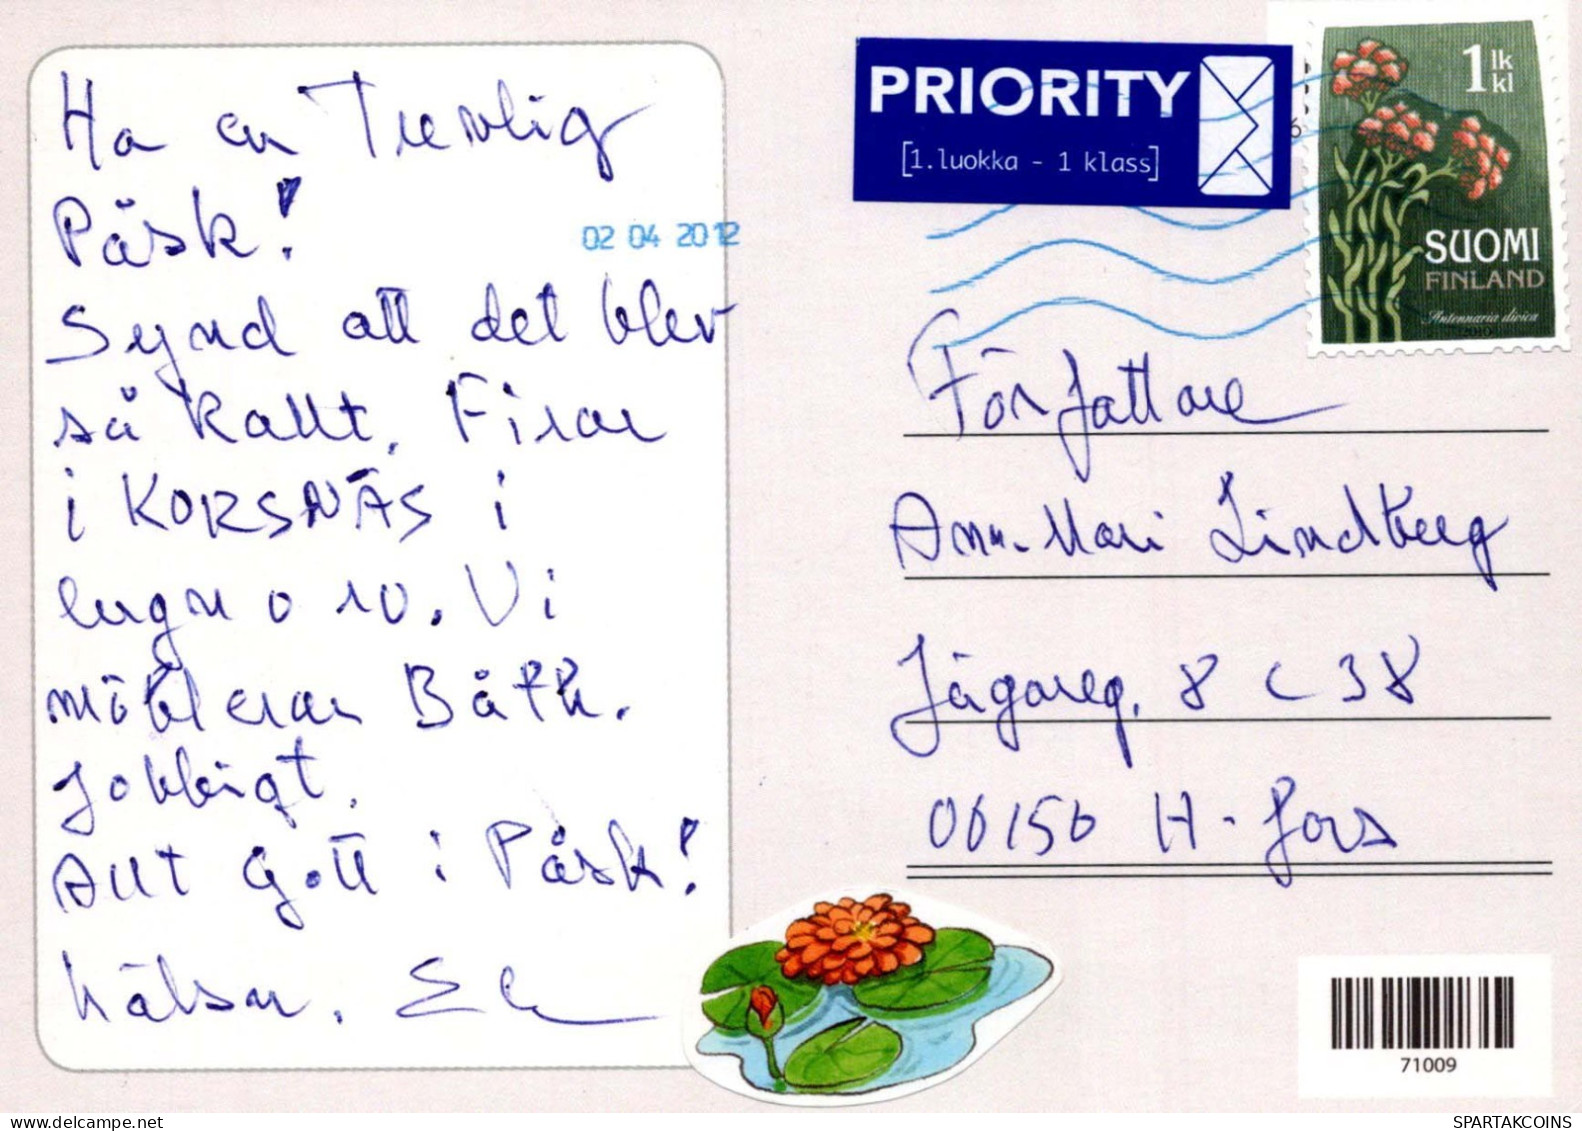 Ha en Trevlig
Påsk!
Synd att det blev
så kallt. Firar
i KORSNÄS i
lugn o ro. Vi
möblerar Båth.
Jobbigt.
Allt gott i Påsk!
Hälsn.
02 04 2012
PRIORITY
[1.luokka - 1 klass]
1 lk
kl
SUOMI
FINLAND
Antennaria dioica
2010
Författare
Ann-Mari Lindberg
Jägareg. 8 C 38
00150 H-fors
71009
SPARTAKCOINS